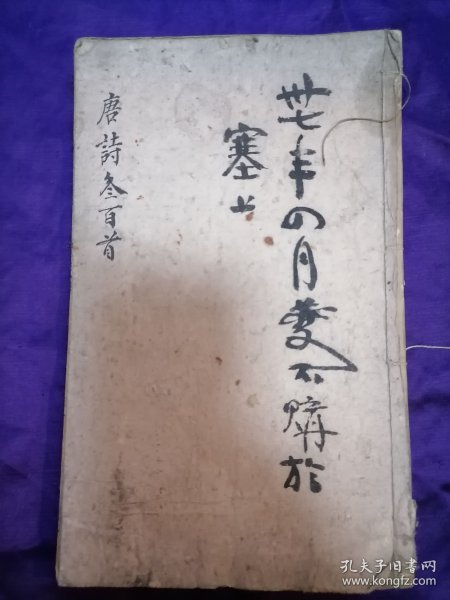 卅七年四月蔓石購於
塞上
唐詩叁百首
孔夫子旧书网
www.kongfz.com